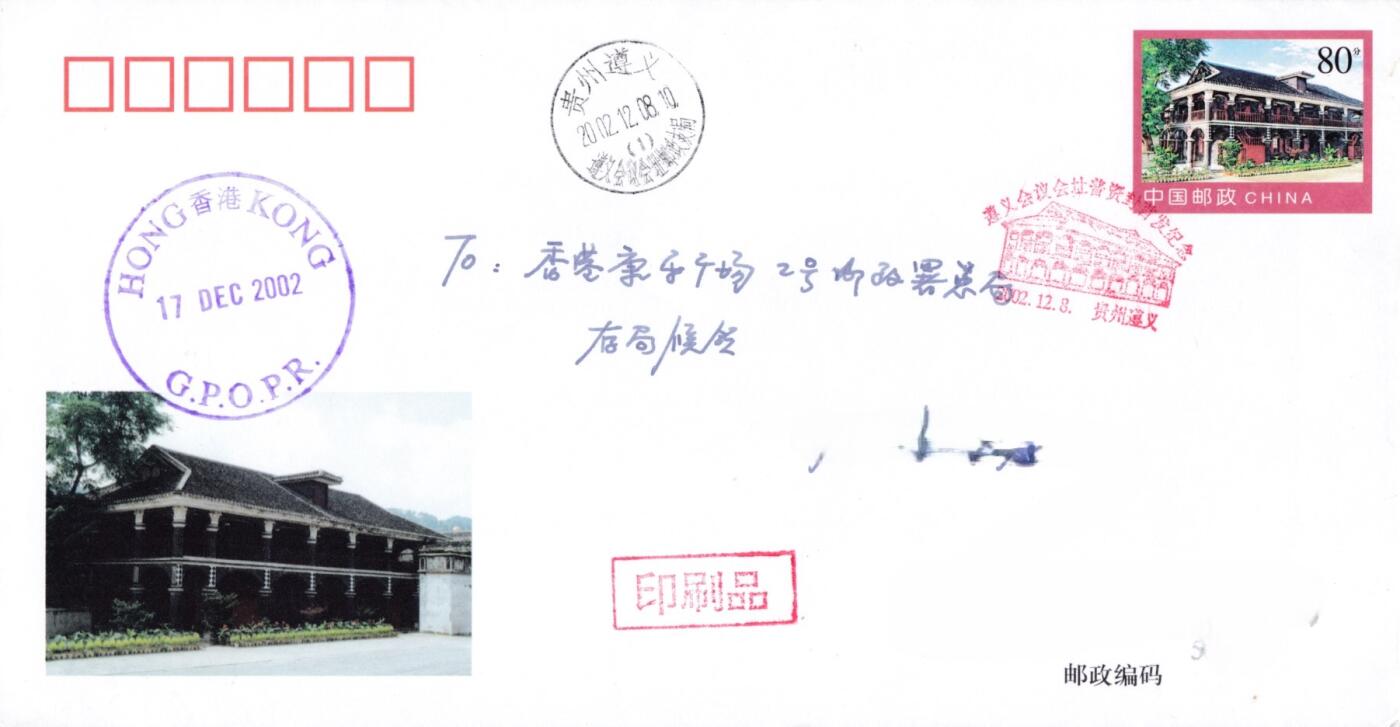 80分
中国邮政 CHINA
贵州遵义
2002.12.08.10
(1)
遵义会议会址邮政支局
HONG 香港 KONG
17 DEC 2002
G.P.O.P.R.
遵义会议会址普资封首发纪念
2002.12.8. 贵州遵义
To: 香港康乐广场 2号邮政署总局
存局候领
印刷品
邮政编码